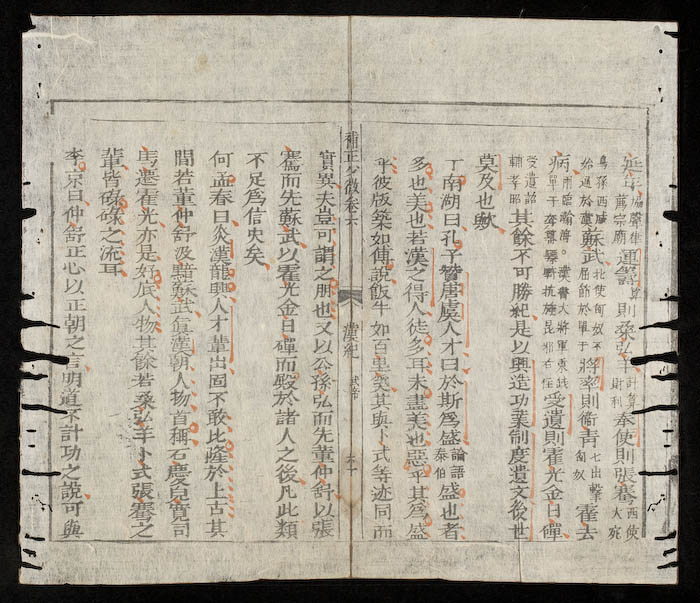 延年 協聲律薦宗廟 運籌 算 則桑弘羊 計算財利 奉使則張騫 西使大宛
烏孫西域始通於漢 蘇武 北使匈奴不屈節於單于 將率則衛青 七出擊匈奴 霍去
病 受遺則霍光金日磾
受遺詔輔孝昭 其餘不可勝紀是以興造功業制度遺文後世
莫及也歟
丁南湖曰孔子贊唐虞人才曰於斯爲盛 論語泰伯 盛也者
多也美也若漢之得人徒多耳未盡美也惡乎其爲盛
乎彼版築如傅說飯牛如百里奚其與卜式等迹同而
補正少微卷六 漢紀 武帝 六十
實異夫豈可謂之朋也又以公孫弘而先董仲舒以張
騫而先蘇武以霍光金日磾而殿於諸人之後凡此類
不足爲信史矣
何孟春曰炎漢龍興人才輩出固不敢比隆於上古其
間若董仲舒汲黯蘇武眞漢朝人物首稱石慶兒寬司
馬遷霍光亦是好底人物其餘若桑弘羊卜式張騫之
輩皆碌碌之流耳
李京曰仲舒正心以正朝之言明道不計功之說可與